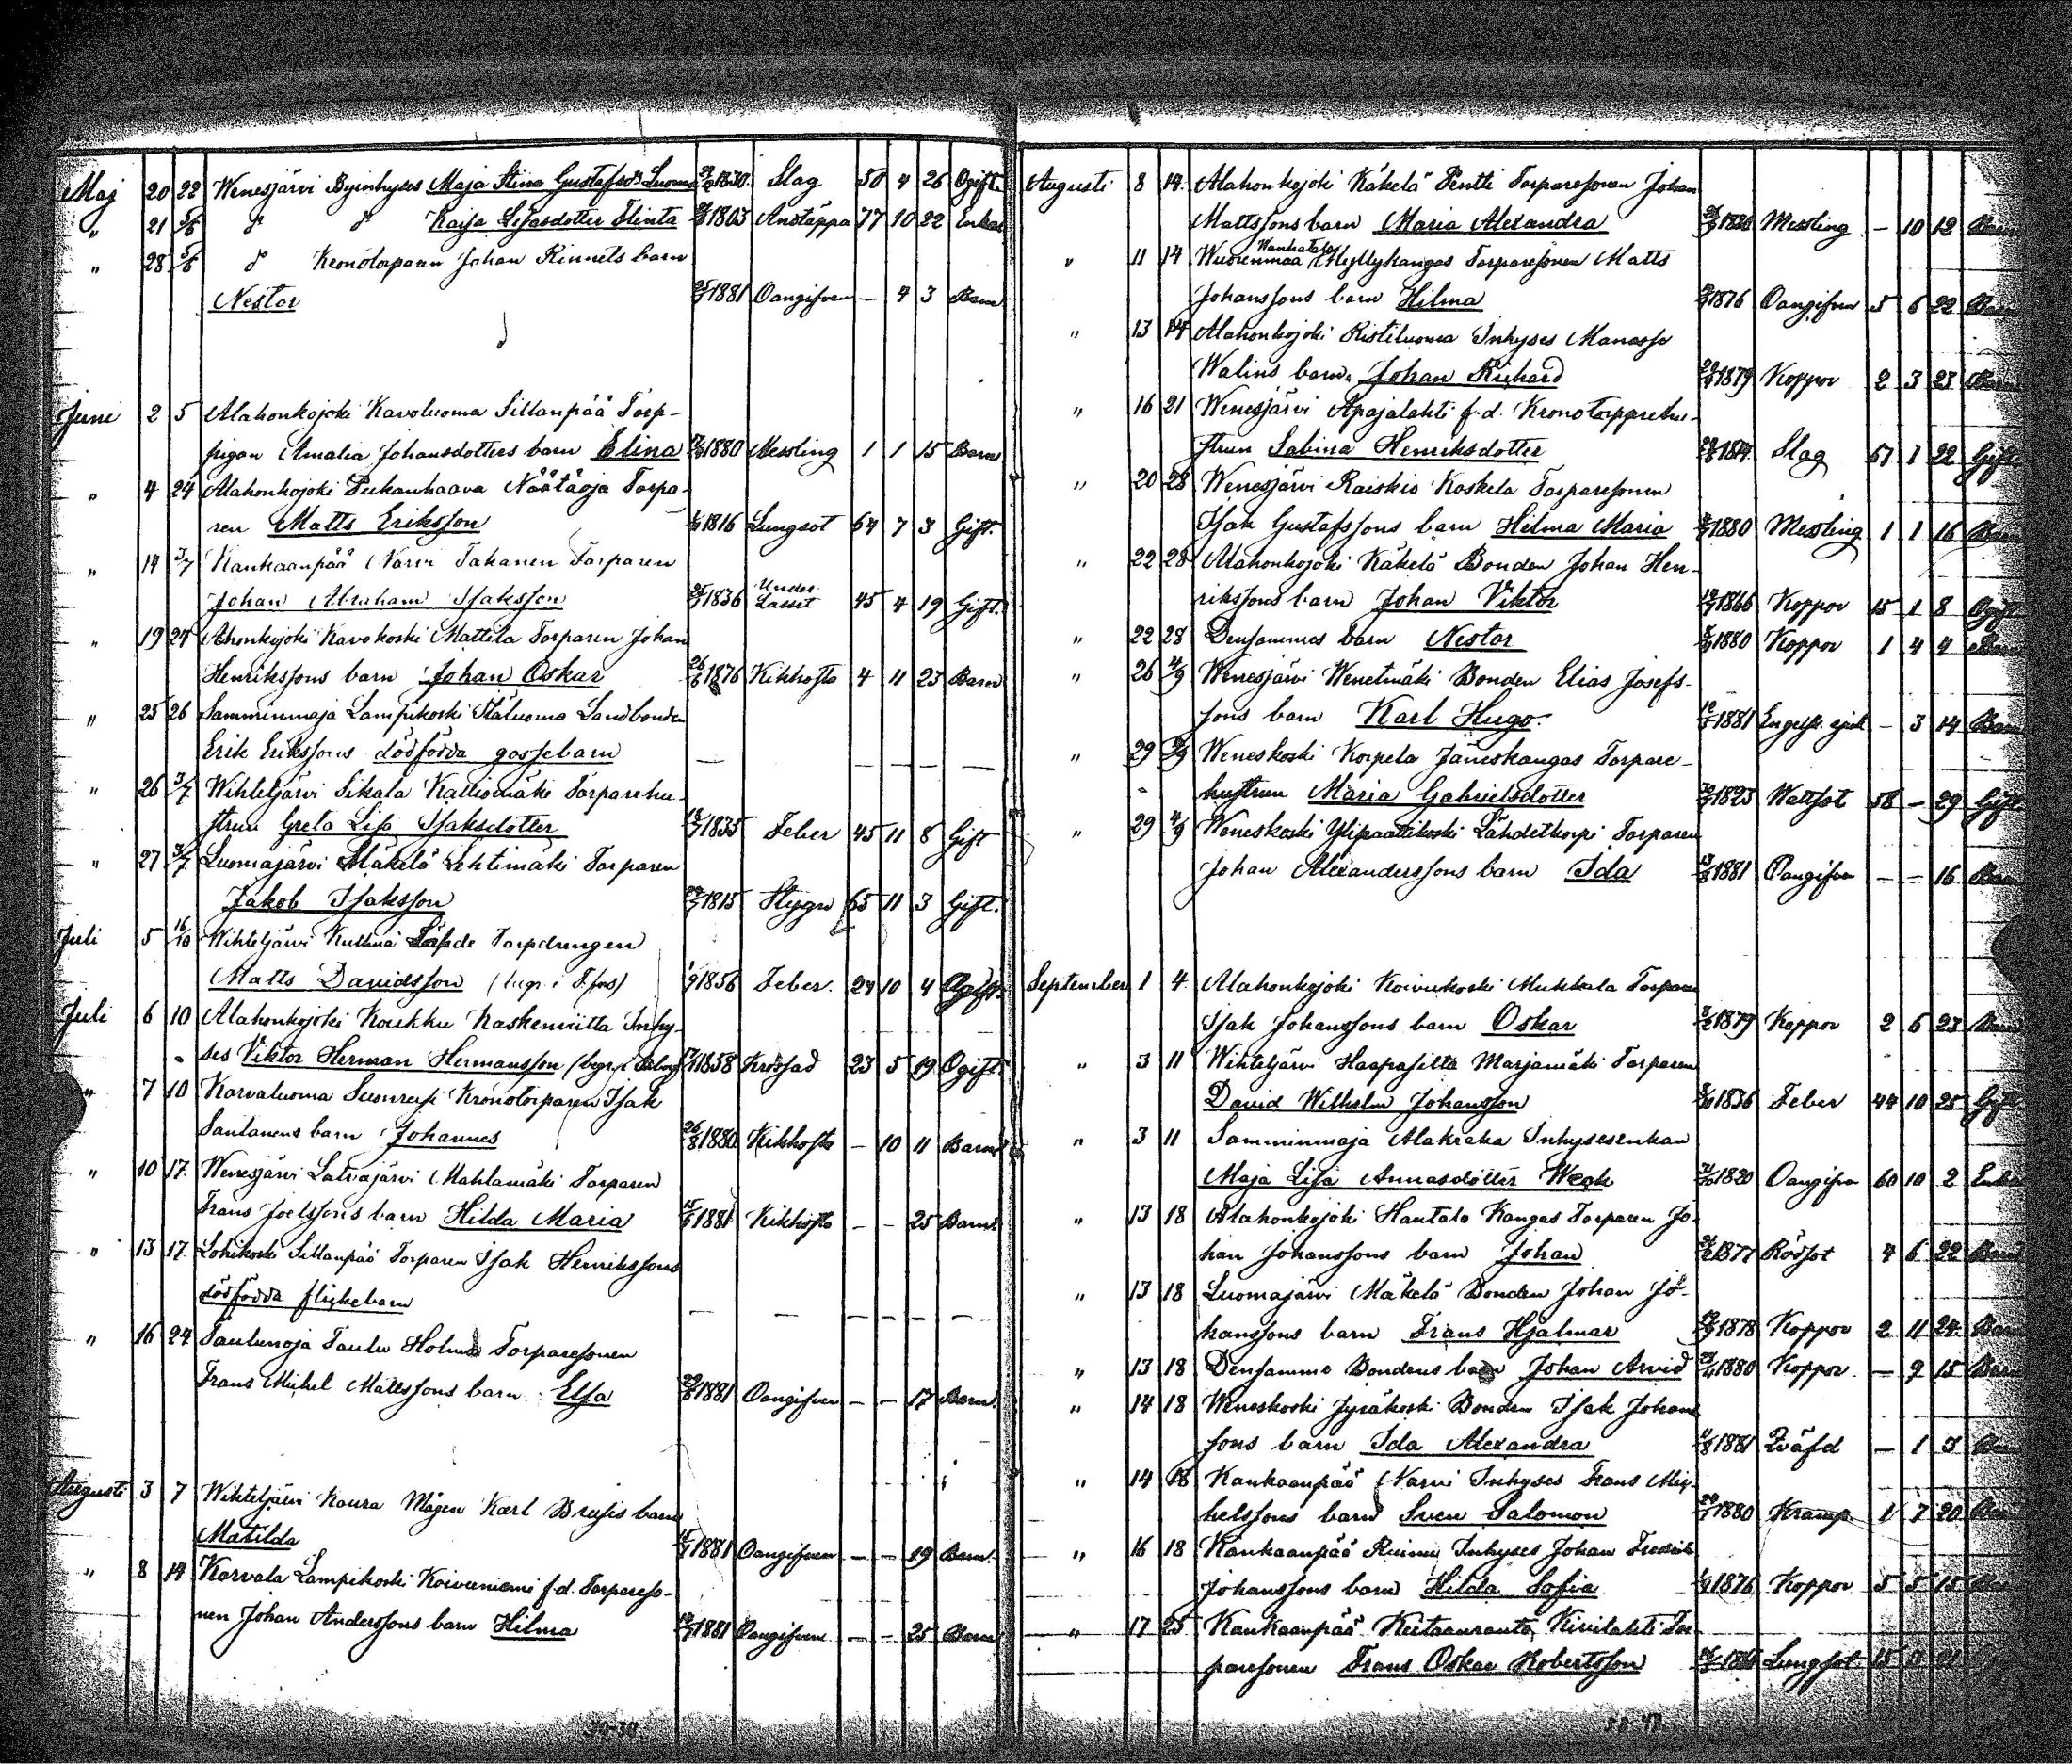 Maj 20 22 Wenesjärvi Byinhyses Maja Stina Gustafsdr Luoma 1830 Slag 50 4 26 Ogift.
" 21 5/6 d d Kaisa Lisasdotter Flinta 1803 Andtäppa 77 10 22 Enka
" 28 5/6 d Kronotorparen Johan Rinnets barn
Nestor 25/1 1881 Oangifven — 4 3 Barn
Juni 2 5 Alahonkojoki Karvoluoma Sillanpää Torp-
pigan Amalia Johansdotters barn Elina 1880 Messling 1 1 15 Barn
" 4 24 Alahonkojoki Näätäoja Torpa-
ren Matts Eriksson 1816 Lungsot 64 7 3 Gift.
" 14 3/7 Kankaanpää Narvi Takanen Torparen
Johan Abraham Isaksson 1836 Under Lasset 45 4 19 Gift.
" 19 24 Ahonkojoki Karvokoski Mattela Torparen Johan
Henrikssons barn Johan Oskar 26/6 1876 Kikhosta 4 11 23 Barn
" 25 26 Samminmaja Lampikoski Landbonden
Erik Erikssons dödfödda gossebarn — — — —
" 26 3/7 Wihteljärvi Sikala Kalliomäki Torparehu-
strun Greta Lisa Isaksdotter 18/7 1835 Feber 45 11 8 Gift
" 27 3/7 Luomajärvi Mäkelä Lehtimäki Torparen
Jakob Isaksson 1815 Stygn 65 11 3 Gift.
Juli 5 16/10 Wihteljärvi Kullna Lähde Torpdrengen
Matts Davidsson (begr. i T:fors) 1/9 1856 Feber. 24 10 4 Ogift.
Juli 6 10 Alahonkojoki Koukku Kaskeniitta Inhy-
ses Viktor Herman Hermansson 1858 Krossad 23 5 19 Ogift.
" 7 10 Karvaluoma Kronotorparen Isak
Santanens barn Johannes 26/8 1880 Kikhosta — 10 11 Barn
" 10 17. Wenesjärvi Latvajärvi Mahlamäki Torparen
Frans Joelssons barn Hilda Maria 15/6 1881 Kikhosta — — 25 Barn
" 13 17. Lohikoski Sillanpää Torparen Isak Henrikssons
dödfödda flickebarn — — — — — —
" 16 24 Taulunoja Taulu Holma Torparesonen
Frans Mickel Mattssons barn Elsa 29/6 1881 Oangifven — — 17 Barn.
Augusti 3 7 Wihteljärvi Koura Mågen Karl Brusis barn
Matilda 15/7 1881 Oangifven — — 19 Barn.
" 8 14 Karvala Lampikoski Koivuniemi f.d. Torpareso-
nen Johan Anderssons barn Hilma 14/7 1881 Oangifven — — 25 Barn
Augusti 8 14. Alahonkojoki Käkelä Pentti Torparesonen Johan
Mattssons barn Maria Alexandra 1880 Messling — 10 12 Barn
" 11 14 Wuorenmaa Wanhatalo Myllykangas Torparesonen Matts
Johanssons barn Hilma 1876 Oangifven 5 6 22 Barn
" 13 14 Alahonkojoki Ristiluoma Inhyses Manasse
Walins barn Johan Rickard 1879 Koppor 2 3 23 Barn
" 16 21 Wenesjärvi Apajalahti f.d. Kronotorparehu-
strun Sabina Henriksdotter Slag 67 1 22 Gift
" 20 28 Wenesjärvi Raiskio Koskela Torparesonen
Isak Gustafssons barn Hilma Maria 1880 Messling 1 1 16 Barn
" 22 28 Alahonkojoki Käkelä Bonden Johan Hen-
rikssons barn Johan Viktor 14/7 1866 Koppor 15 1 8 Ogift
" 22 28 Densammes barn Nestor 1880 Koppor 1 4 4 Barn
" 26 4/9 Wenesjärvi Wenetmäki Bonden Elias Josefs-
sons barn Karl Hugo. 12/5 1881 Engelsk sjuk — 3 14 Barn
" 29 Weneskoski Korpela Jäneskangas Torpare-
hustrun Maria Gabrielsdotter 1823 Wattsot 58 — 29 Gift
" 29 4/9 Weneskoski Ylipaattikoski Lähdetkorpi Torparen
Johan Alexanderssons barn Ida 13/8 1881 Oangifven — — 16 Barn
September 1 4. Alahonkojoki Koivukoski Mukkala Torparen
Isak Johanssons barn Oskar 1879 Koppor 2 6 23 Barn
" 3 11 Wihteljärvi Haapasilta Marjamäki Torparen
David Wilhelm Johansson 1836 Feber 44 10 25 Gift
" 3 11 Samminmaja Alakraka Inhysesenkan
Maja Lisa Annasdotter Week 1820 Oangifven 60 10 2 Enka
" 13 18 Alahonkojoki Hautala Kangas Torparen Jo-
han Johanssons barn Johan 1877 Rödsot 4 6 22 Barn
" 13 18 Luomajärvi Mäkelä Bonden Johan Jo-
hanssons barn Frans Hjalmar 1878 Koppor 2 11 24 Barn
" 13 18 Densamme Bondens barn Johan Arvid 1880 Koppor — 9 15 Barn
" 14 18 Weneskoski Jyräkoski Bonden Isak Johans-
sons barn Ida Alexandra 1881 Qväfd — 1 3 Barn
" 14 18 Kankaanpää Narvi Inhyses Frans Mic-
helssons barn Sven Salomon 1880 Kramp. 1 7 20 Barn
" 16 18 Kankaanpää Ruinu Inhyses Johan Fredrik
Johanssons barn Hilda Sofia 1/4 1876 Koppor 5 5 15 Barn
" 17 25 Kankaanpää Keitaanranta Kivilahti Tor-
paresonen Frans Oskar Robertsson 1866 Lungsot 15